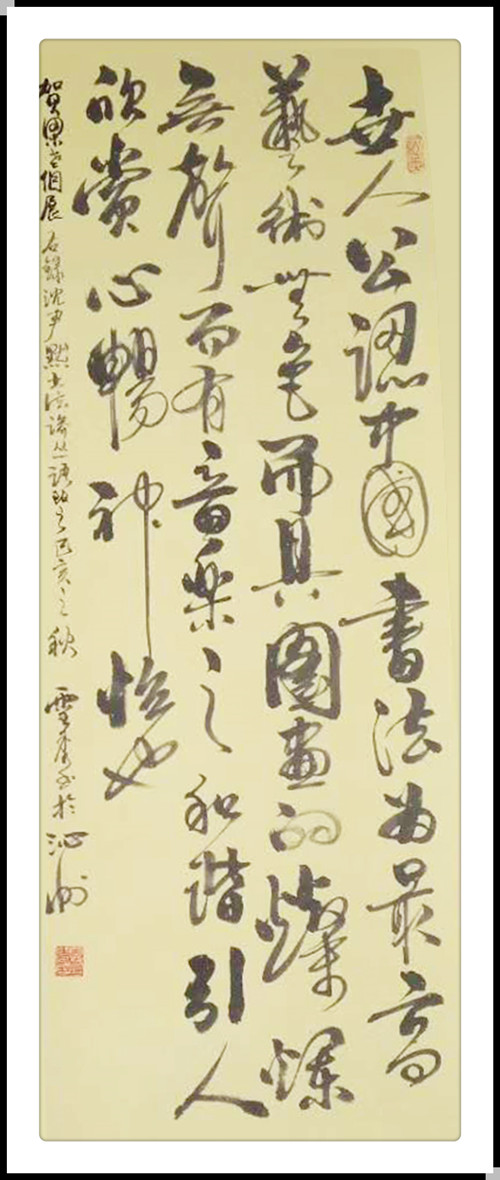 世人公認中國書法為最高
藝術無色而具圖畫的燦爛
無聲而有音樂之和諧引人
欣賞心暢神怡也
賀個展 右錄沈尹默書法論叢語 己亥之秋 於沁州